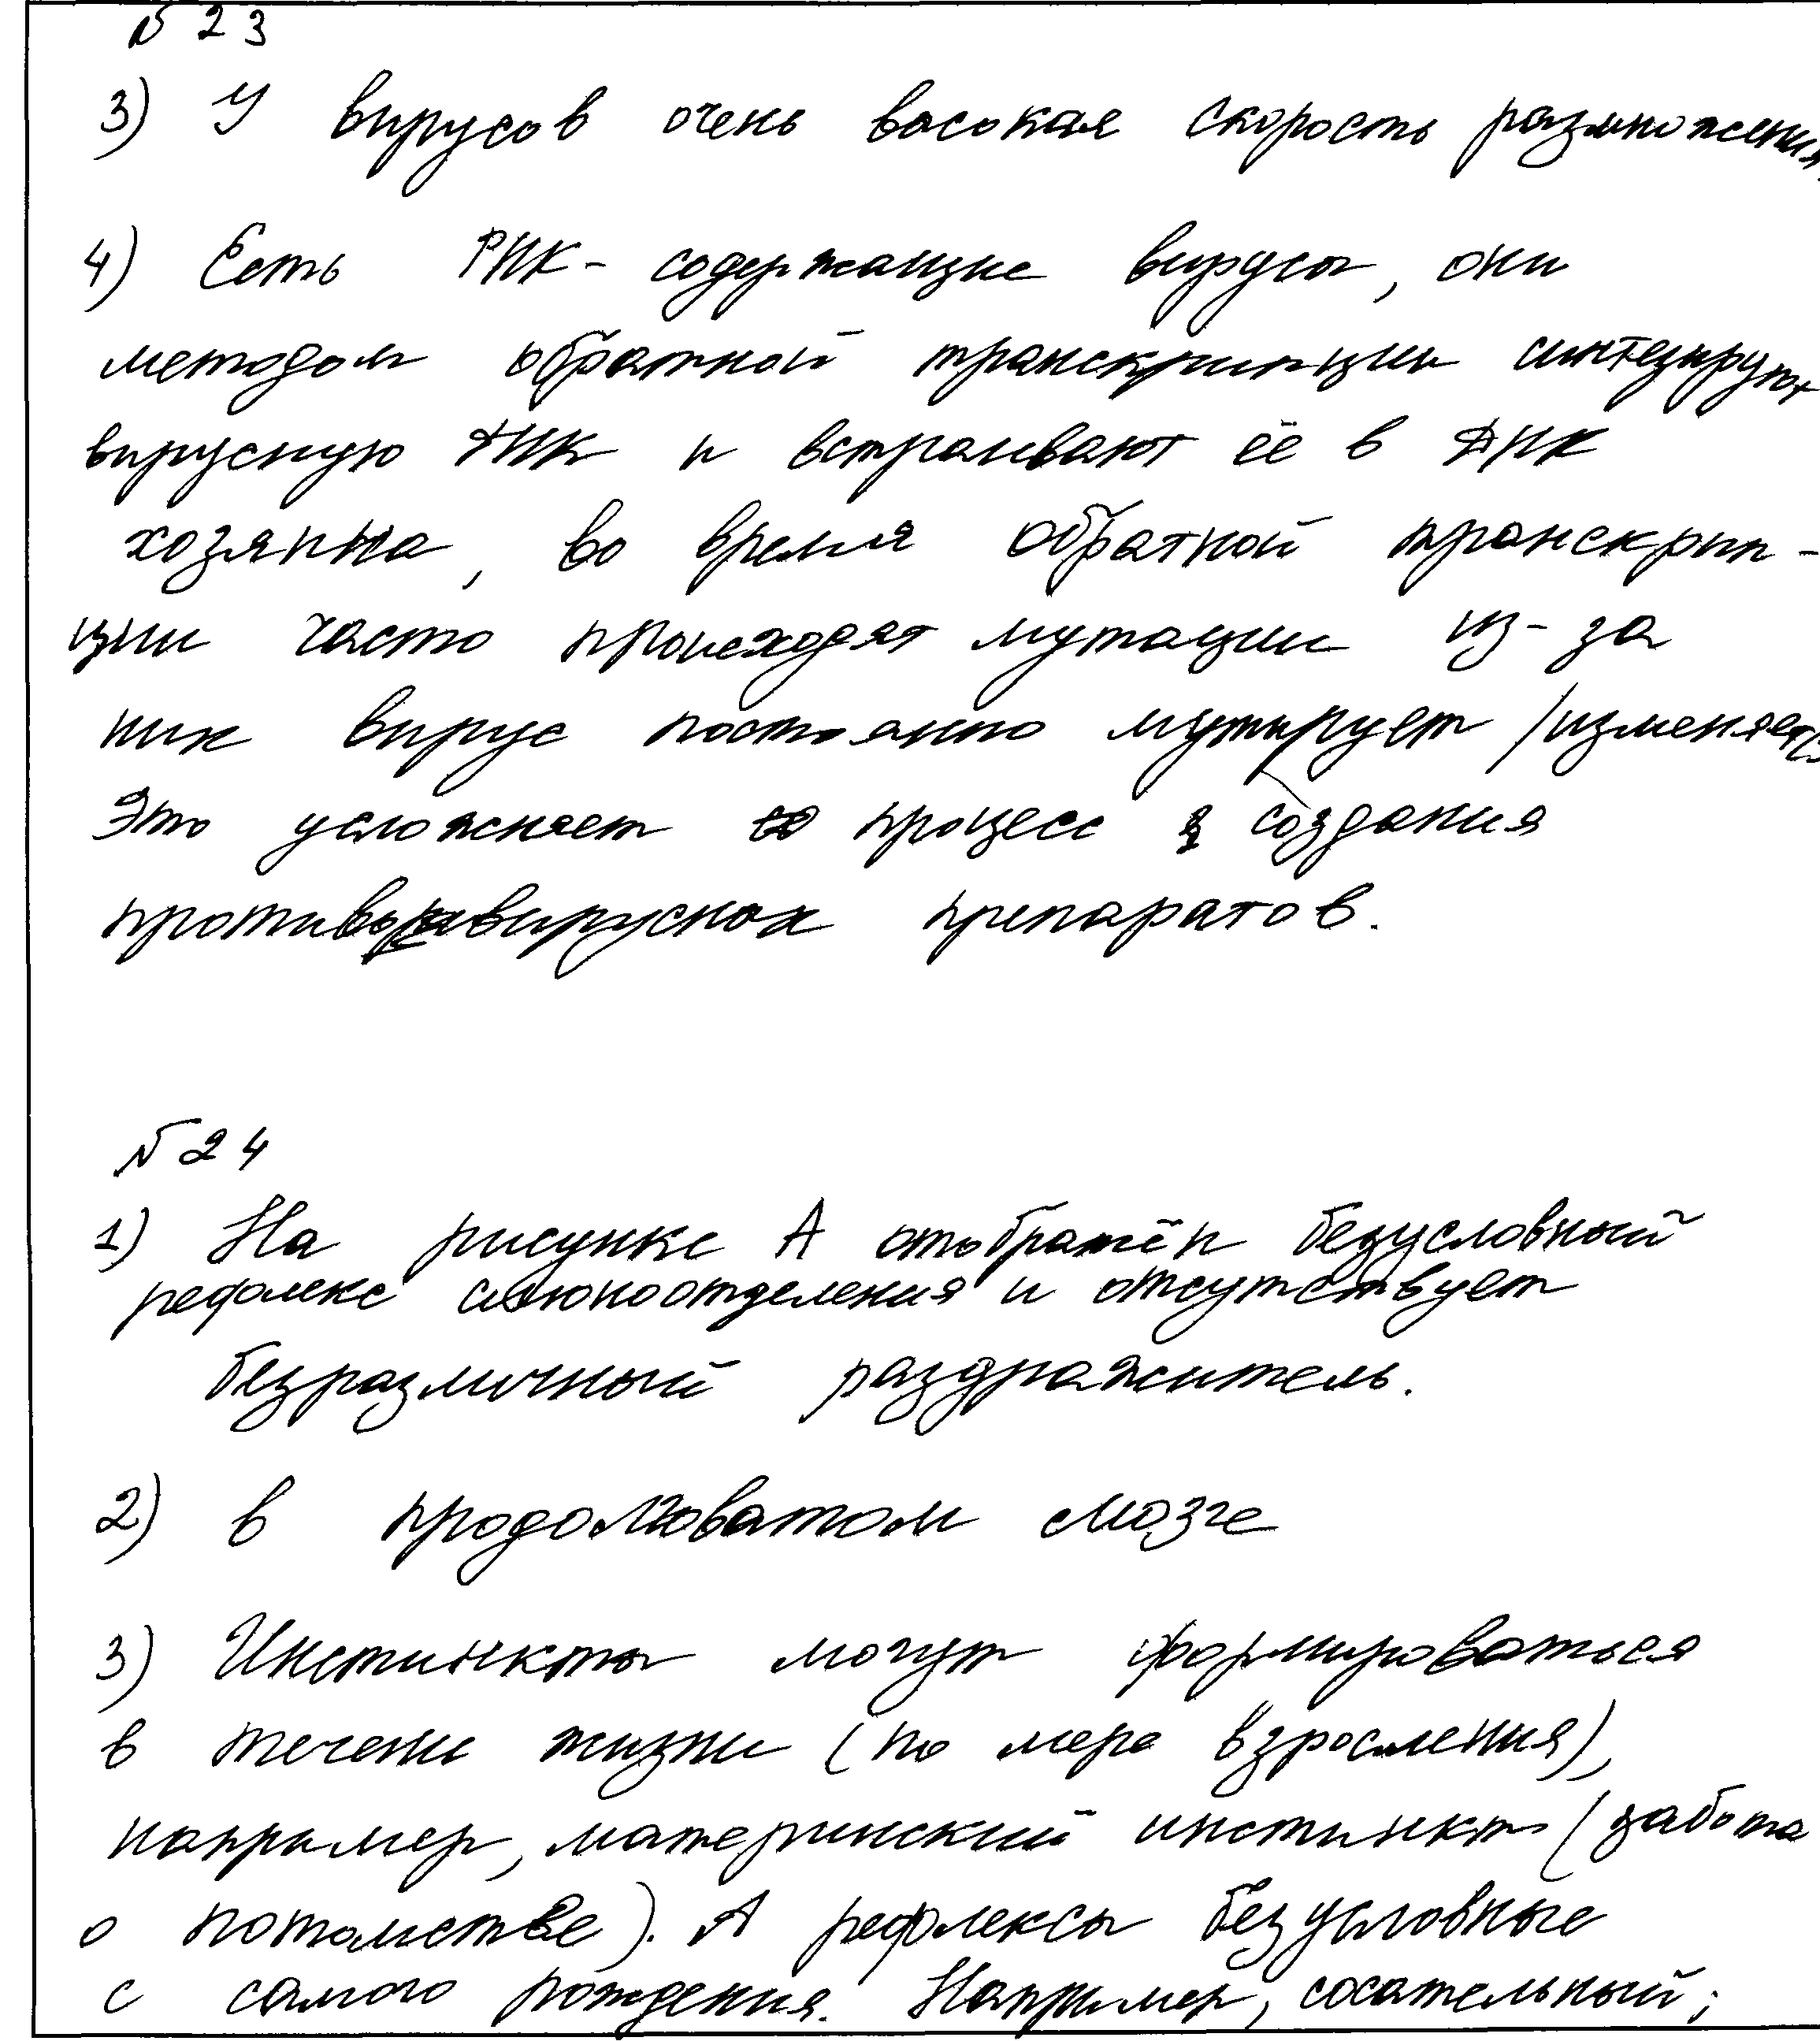 № 23
3) У вирусов очень высокая скорость размножения,
4) Есть РНК- содержащие вирусы, они
методом обратной транскрипции синтезируют
вирусную ДНК и встраивают её в ДНК
хозяина, во время обратной транскрип-
ции часто происходят мутации из-за
них вирус постоянно мутирует /изменяется
Это усложняет процесс создания
противовирусных препаратов.
№ 24
1) На рисунке А отображён безусловный
рефлекс слюноотделения и отсутствует
безразличный раздражитель.
2) в продолговатом мозге
3) Инстинкты могут формироваться
в течени жизни (по мере взросления),
например, материнский инстинкт (забота
о потомстве). А рефлексы безусловные
с самого рождения. Например, сосательный;